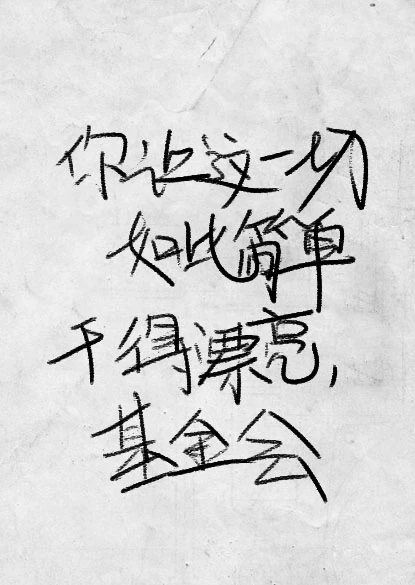 你让这一切
如此简单
干得漂亮,
基金会